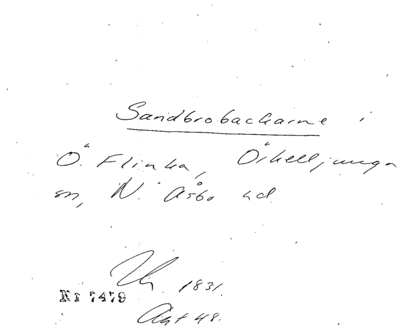 Sandbrobackarne i
Ö. Flinka, Örkelljunga
sn, N. Åsbo hd.
1831.
Nr 7479
Akt 48.